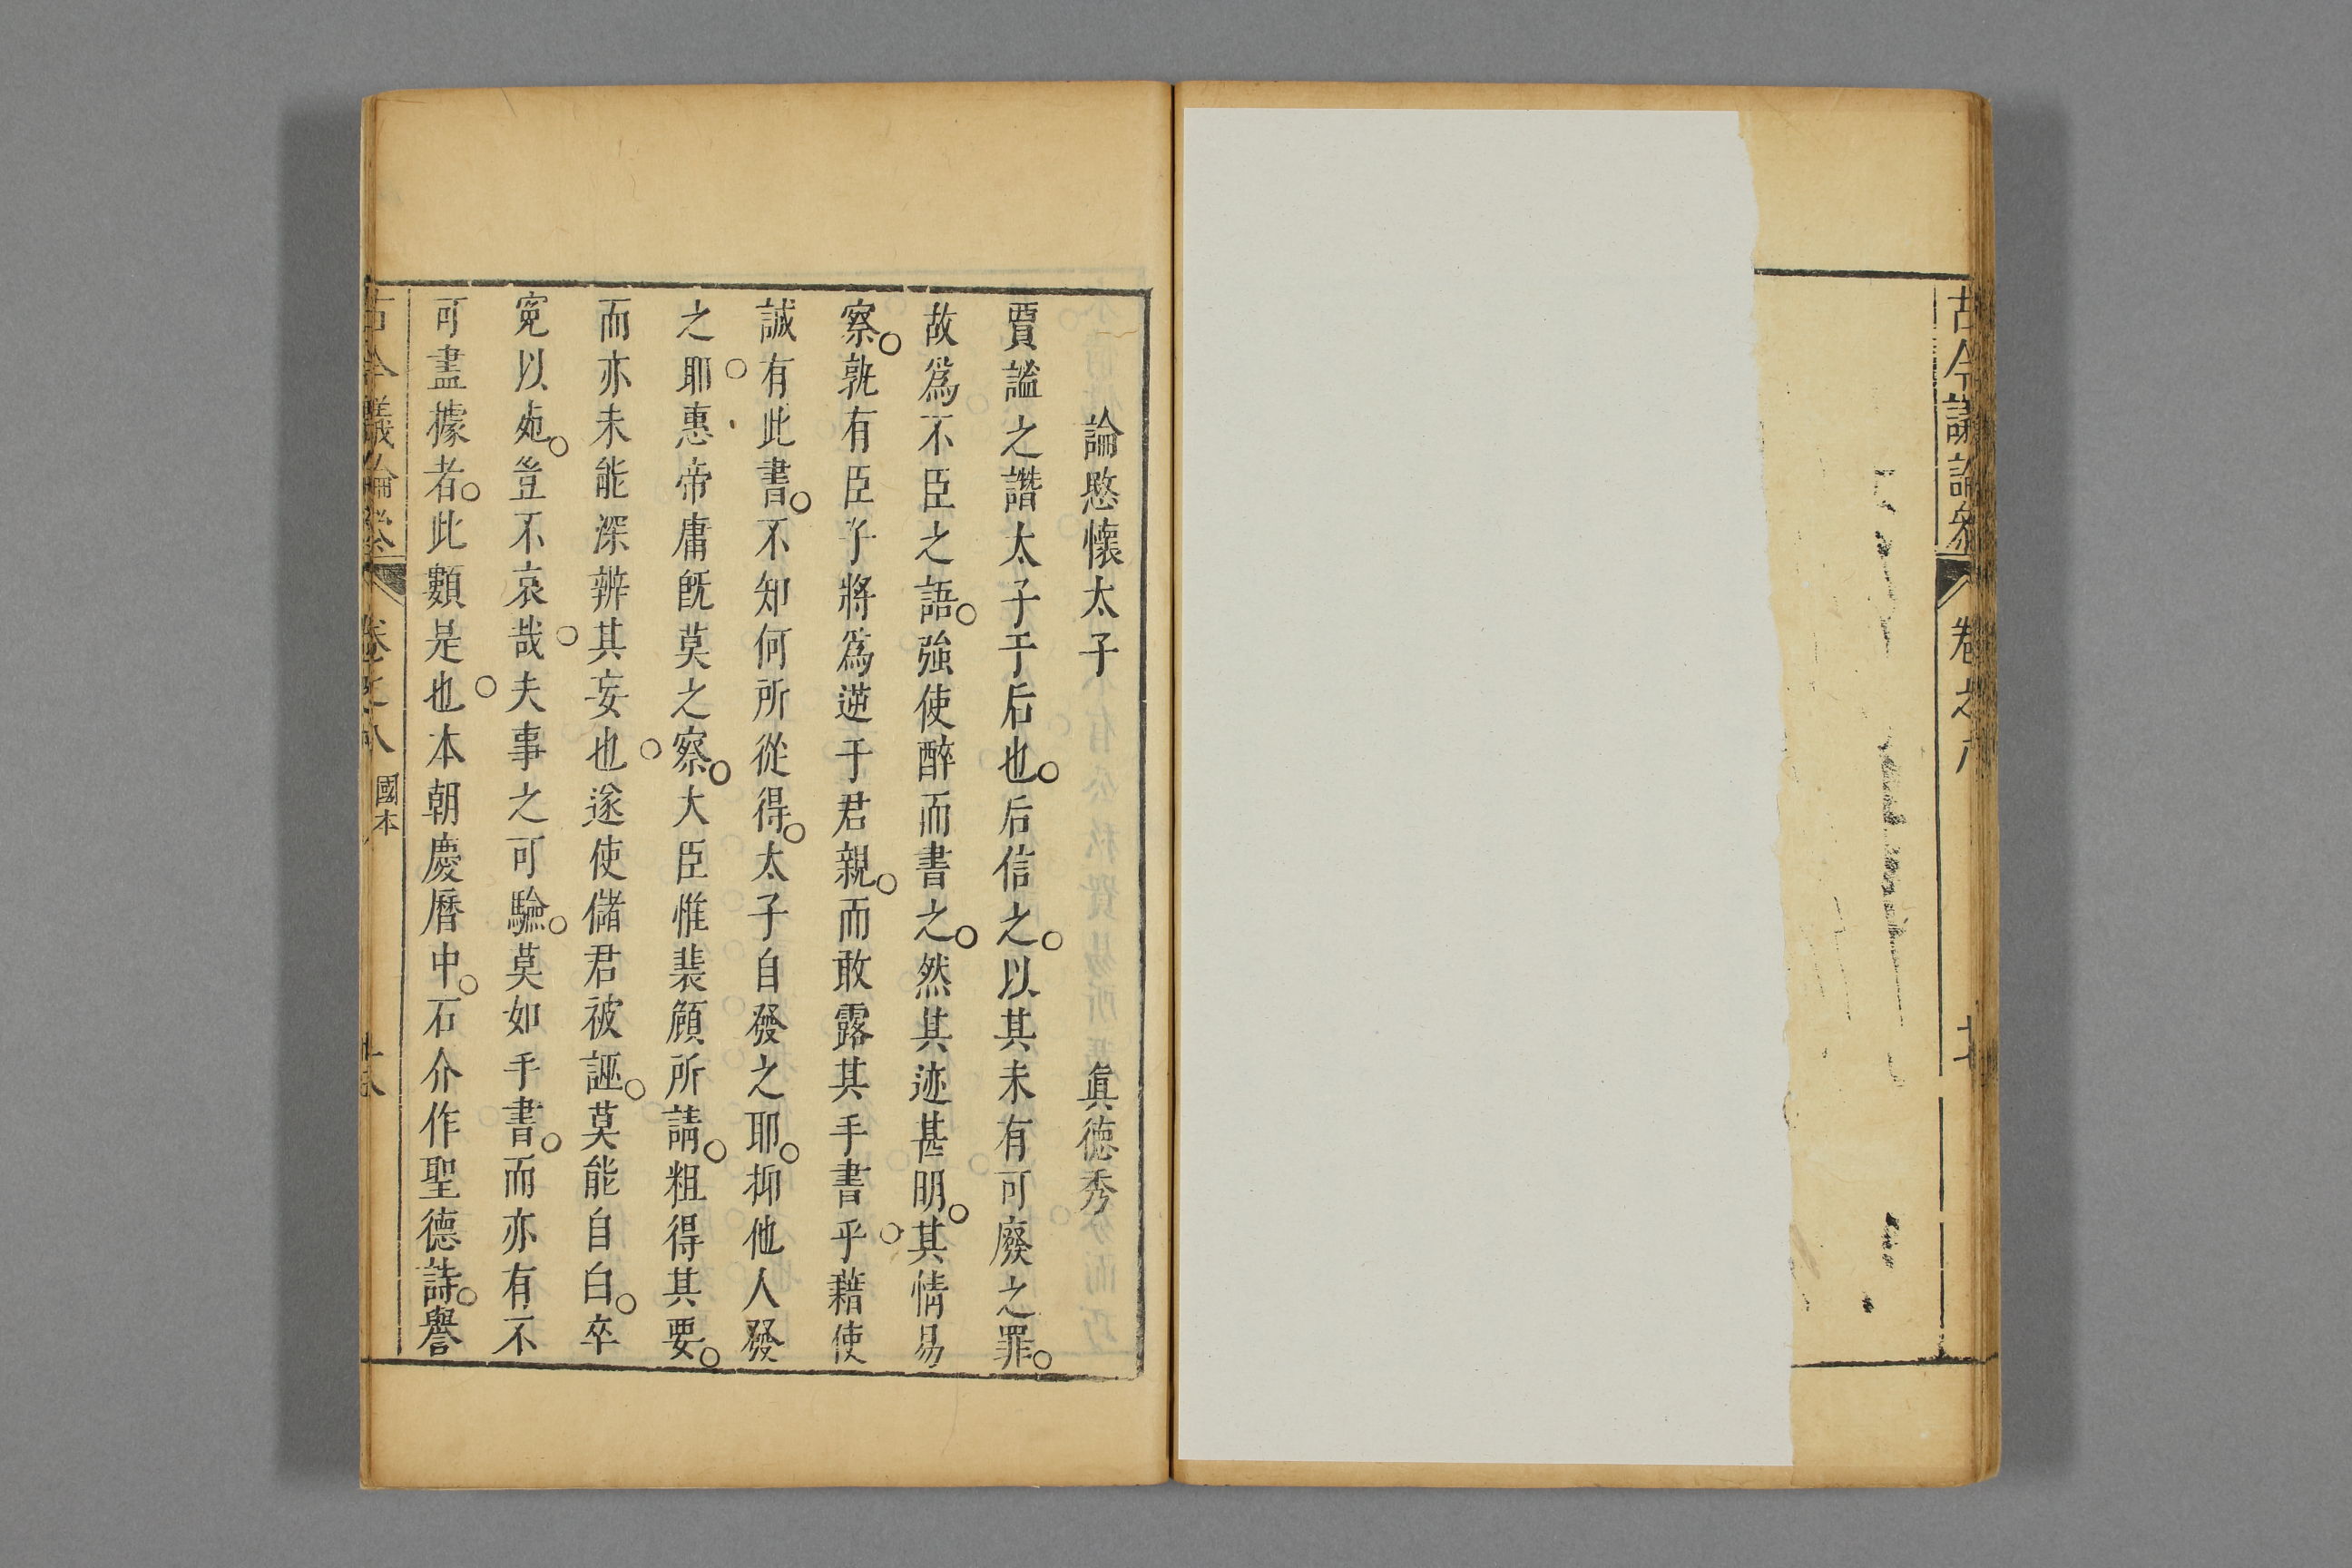 古今議論參 卷之
論愍懷太子 眞德秀
賈謐之譖太子于后也后信之以其未有可廢之罪
故爲不臣之語強使醉而書之然其迹甚明其情易
察孰有臣子將爲逆于君親而敢露其手書乎藉使
誠有此書不知何所從得太子自發之耶抑他人發
之耶惠帝庸旣莫之察大臣惟裴頠所請粗得其要
而亦未能深辨其妄也遂使儲君被誣莫能自白卒
寃以死豈不哀哉夫事之可驗莫如手書而亦有不
可盡據者此類是也本朝慶曆中石介作聖德詩譽
古今議論參 卷之八 國本